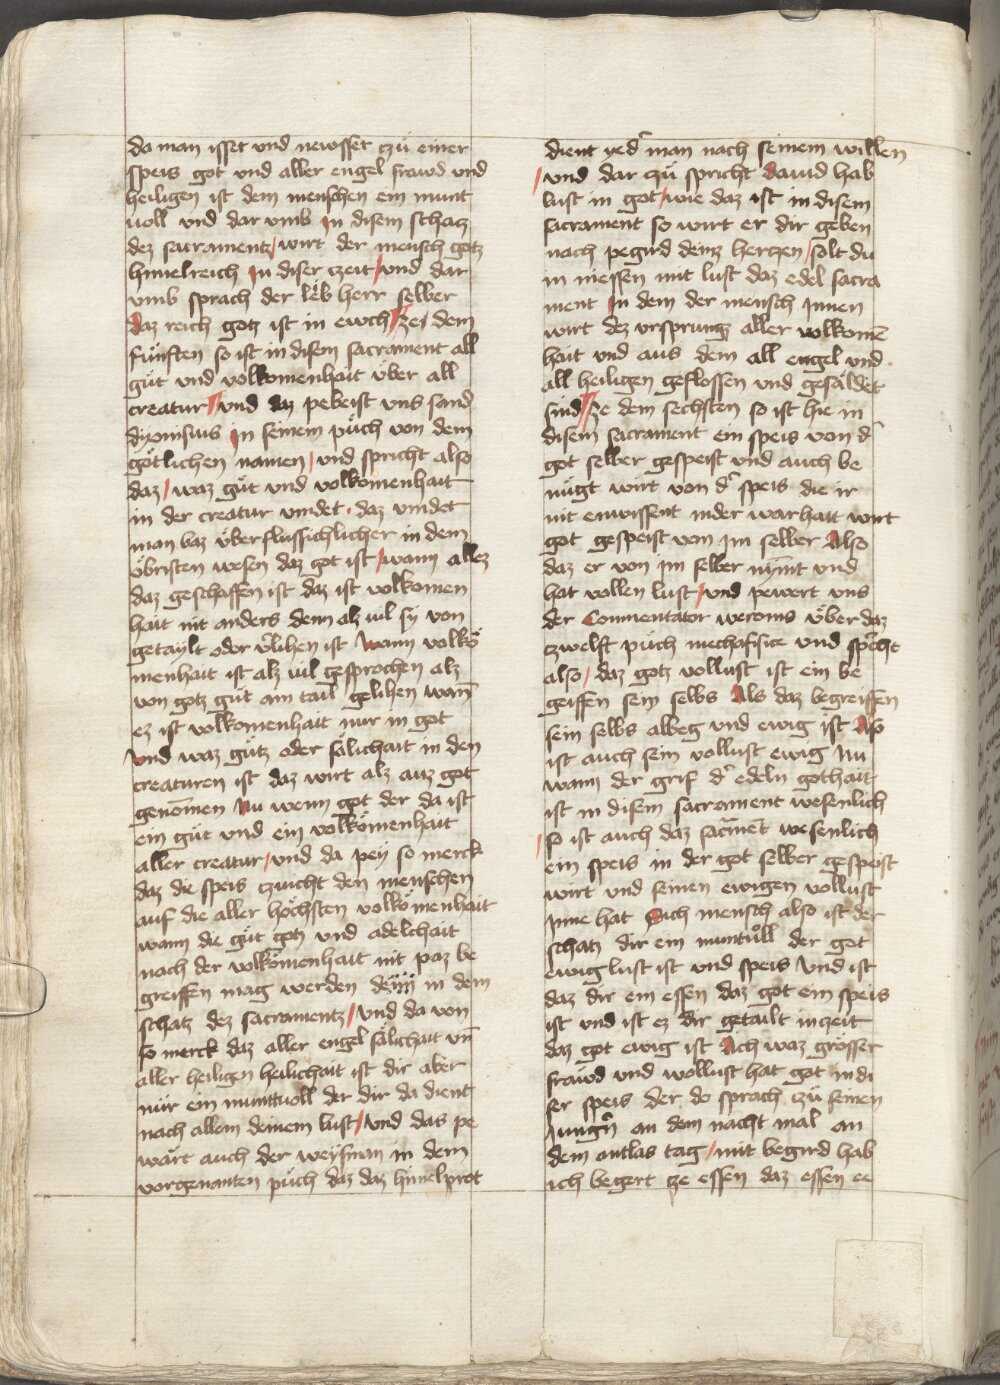 da man isset und newsset czü einer
speis got und aller engel frawd und
heiligen ist dem menschen ein munt
voll und dar umb In disem schacz
dez sacramentz / wirt der mensch gotz
himelreich In diser czeit / und dar
umb sprach der lëb herr selber
daz reich gotz ist in ewch // Ze dem
fünften so ist in disem sacrament all
güt und volkomenhait über all
creatur // und daz pebeist uns sand
dyonisius In seinem püch von dem
götlichen namen / und spricht also
daz / waz güt und volkomenhait
in der creatur vindet · daz vindet
man baz überflussichlicher in dem
öbristen wesen daz got ist / wann allez
daz geschaffen ist daz ist volkomen
hait nit anders denn alz vil sy von
getaylt oder v̉lihen ist Wann volkö
menhait ist alz vil gesprochen alz
von gotz güt ain tail gelihen wan̄
ez ist volkomenhait nur in got
Und waz gütz oder sälichait in den
creaturen ist daz wirt alz auz got
genom̄en Nu wenn got der da ist
ein güt und ein volkömenhait
aller creatur / und da pey so merck
daz die speis czuicht den menschen
auf die aller höchsten volkömenhait
wann die güt gotz und adelchait
nach der volkömenhait nit paz be
greiffen mag werden denn in dem
schatz dez sacramentz / und da von
so merck daz aller engel sälichait vn̄
aller heiligen heilichait ist dir aber
nür ein munttvoll der dir da dient
nach allem deinem lust / und das pe
wärt auch der weysman in dem
vorgenanten püch daz daz himelprot
dient yed̉ man nach seinem willen
/ und dar czü spricht david hab
lust in got / wie daz ist in disem
sacrament so wirt er dir geben
nach pegird deinz herczen / solt du
in niessen mit lust daz edel sacra
ment In dem der mensch Innen
wirt dez ursprungz aller volkomē
hait und aus dem all engel und
all heiligen geflossen und gesäldet
sind // Ze dem sechsten so ist hie in
disem sacrament ein speis von d̉
got selber gespeist und auch be
nügt wirt von d̉ speis die ir
nit enwissent in der warhait wirt
got gespeist von im selber Also
daz er von im selber nymt und
hat vollen lust / und pewert uns
der Commentator weronis über daz
czwelft püch mechafisice und spricht
also / daz gotz vollust ist ein be
greiffen sein selbs Als daz begreiffen
sein selbs albeg und ewig ist Also
ist auch sein vollust ewig Nu
wann der grif d̉ edeln gothait
ist in disem sacrament wesenlich
/ so ist auch daz sacmēt wesenlich
ein speis in der got selber gespeist
wirt und seinen ewigen vollust
Inne hat Sich mensch also ist der
schatz dir ein muntvoll der got
ewig lust ist und speis Und ist
daz dir ein essen daz got ein speis
ist und ist ez dir getailt in zeit
daz got ewig ist Ach waz grösser
fräwd und wollust hat got in di
ser speis der do sprach czü seinen
Jungn̉ an dem nacht mal an
dem antlas tag / mit begird hab
ich begert ze essen daz essen ee